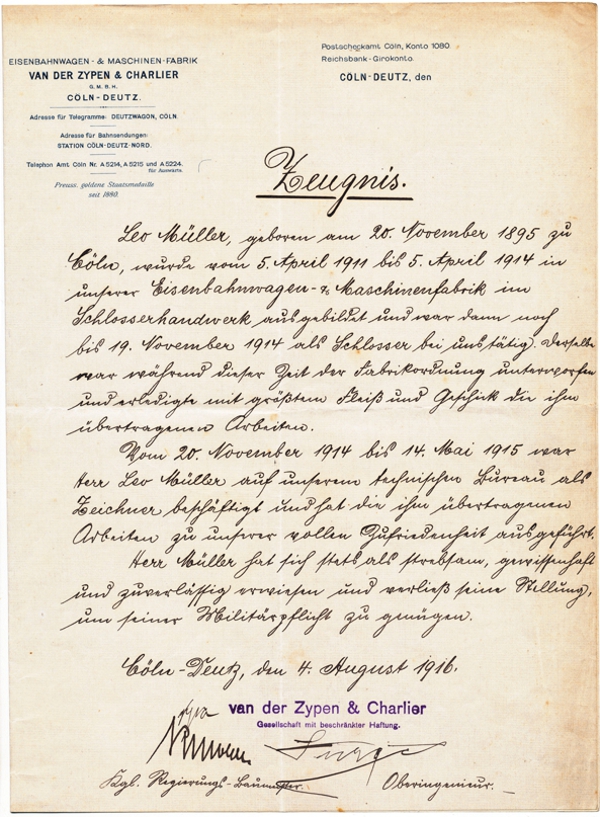 EISENBAHNWAGEN- & MASCHINEN-FABRIK
VAN DER ZYPEN & CHARLIER
G. M. B. H.
CÖLN-DEUTZ.
Adresse für Telegramme: DEUTZWAGON, CÖLN.
Adresse für Bahnsendungen:
STATION CÖLN-DEUTZ-NORD.
Telephon Amt Cöln Nr. A 5214, A 5215 und A 5224.
für Auswärts.
Preuss. goldene Staatsmedaille
seit 1880.
Postscheckamt Cöln, Konto 1080.
Reichsbank-Girokonto.
CÖLN-DEUTZ, den
Zeugnis.
Leo Müller, geboren am 20. November 1895 zu
Cöln, wurde vom 5. April 1911 bis 5. April 1914 in
unserer Eisenbahnwagen- & Maschinenfabrik im
Schlosserhandwerk ausgebildet und war dann noch
bis 19. November 1914 als Schlosser bei uns tätig. Derselbe
war während dieser Zeit der Fabrikordnung unterworfen
und erledigte mit größtem Fleiß und Geschick die ihm
übertragenen Arbeiten.
Vom 20. November 1914 bis 14. Mai 1915 war
Herr Leo Müller auf unserem technischen Bureau als
Zeichner beschäftigt und hat die ihm übertragenen
Arbeiten zu unserer vollen Zufriedenheit ausgeführt.
Herr Müller hat sich stets als strebsam, gewissenhaft
und zuverlässig erwiesen und verließ seine Stellung,
um seiner Militärpflicht zu genügen.
Cöln-Deutz, den 4. August 1916.
ppa
van der Zypen & Charlier
Gesellschaft mit beschränkter Haftung.
Kgl. Regierungs-Baumeister.
Oberingenieur.